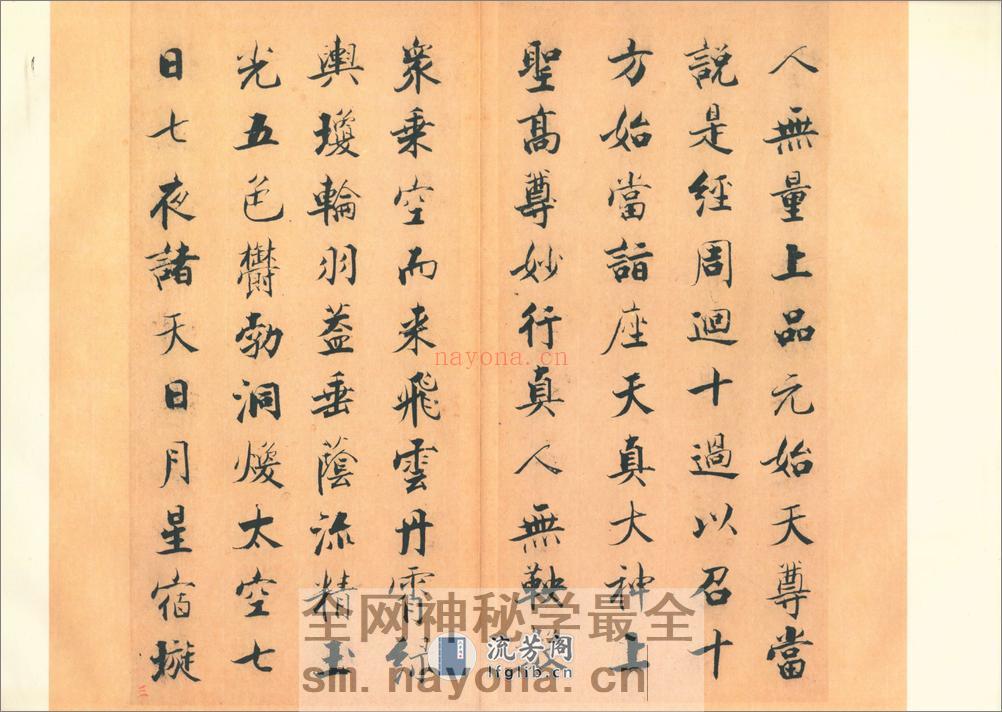 人無量上品元始天尊當
說是經周迴十過以召十
方始當詣座天真大神上
聖高尊妙行真人無鞅
衆乗空而来飛雲丹霄
輿瓊輪羽盖垂蔭流精玉
光五色欝勃洞焕太空七
日七夜諸天日月星宿璇
三
nayona.cn
全网神秘学最全
流芳阁
lfglib.cn
sm.nayona.cn